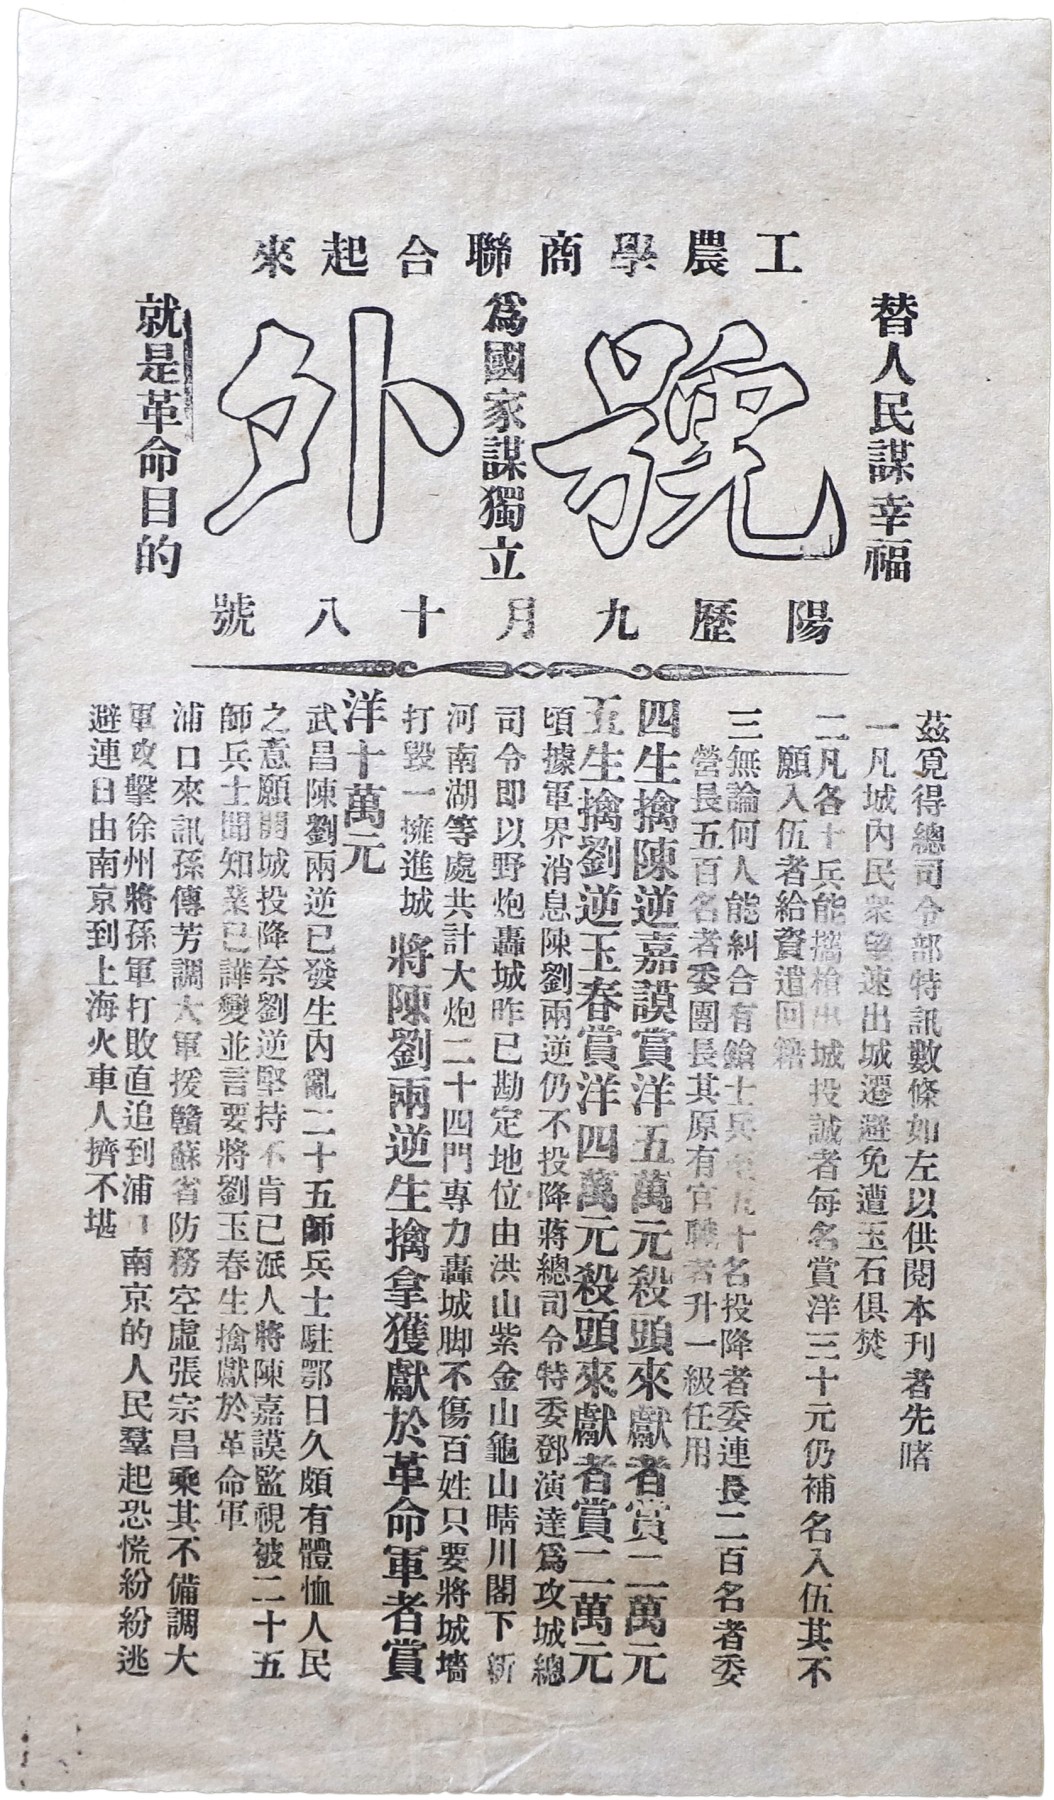 工農學商聯合起來
替人民謀幸福
號外
爲國家謀獨立
就是革命目的
陽歷九月十八號
茲覓得總司令部特訊數條如左以供閱本刊者先睹
一凡城內民衆望速出城遷避免遭玉石俱焚
二凡各士兵能攜槍出城投誠者每名賞洋三十元仍補名入伍其不
願入伍者給資遣回籍
三無論何人能糾合有鎗士兵在五十名投降者委連長二百名者委
營長五百名者委團長其原有官職者升一級任用
四生擒陳逆嘉謨賞洋五萬元殺頭來獻者賞二萬元
五生擒劉逆玉春賞洋四萬元殺頭來獻者賞二萬元
頃據軍界消息陳劉兩逆仍不投降蔣總司令特委鄧演達爲攻城總
司令即以野炮轟城昨已勘定地位由洪山紫金山龜山晴川閣下新
河南湖等處共計大炮二十四門專力轟城脚不傷百姓只要將城墻
打毀一擁進城 將陳劉兩逆生擒拿獲獻於革命軍者賞
洋十萬元
武昌陳劉兩逆已發生內亂二十五師兵士駐鄂日久頗有體恤人民
之意願開城投降奈劉逆堅持不肯已派人將陳嘉謨監視被二十五
師兵士聞知業已譁變並言要將劉玉春生擒獻於革命軍
浦口來訊孫傳芳調大軍援贛蘇省防務空虛張宗昌乘其不備調大
軍攻擊徐州將孫軍打敗直追到浦口南京的人民羣起恐慌紛紛逃
避連日由南京到上海火車人擠不堪